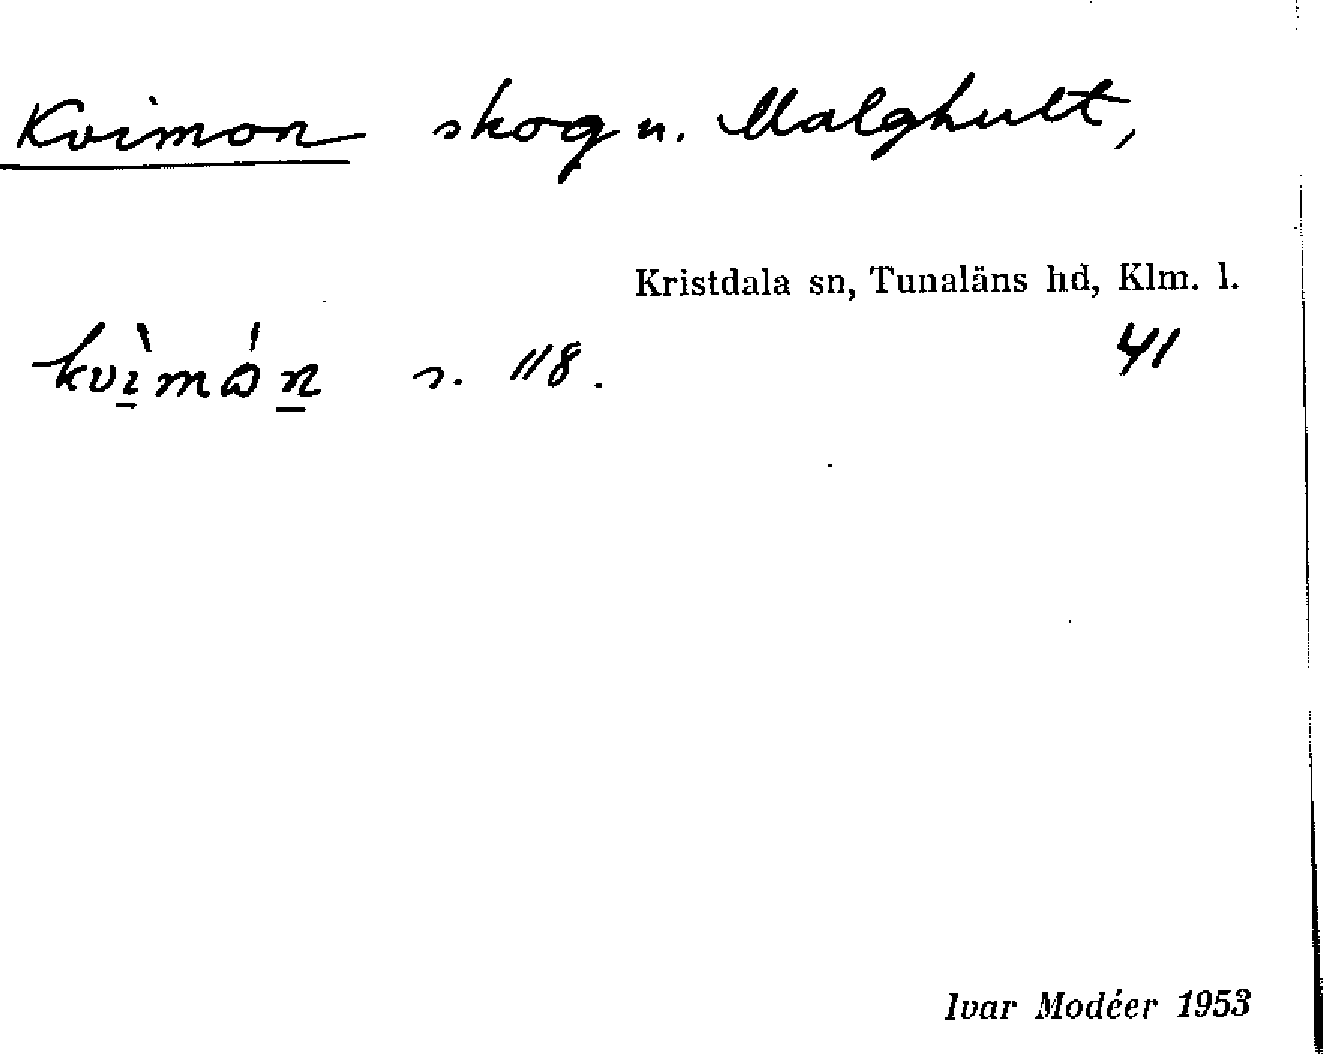 Kvimon skog u. Malghult,
Kristdala sn, Tunaläns hd, Klm. l.
kvìmón s. 118. 41
Ivar Modéer 1953